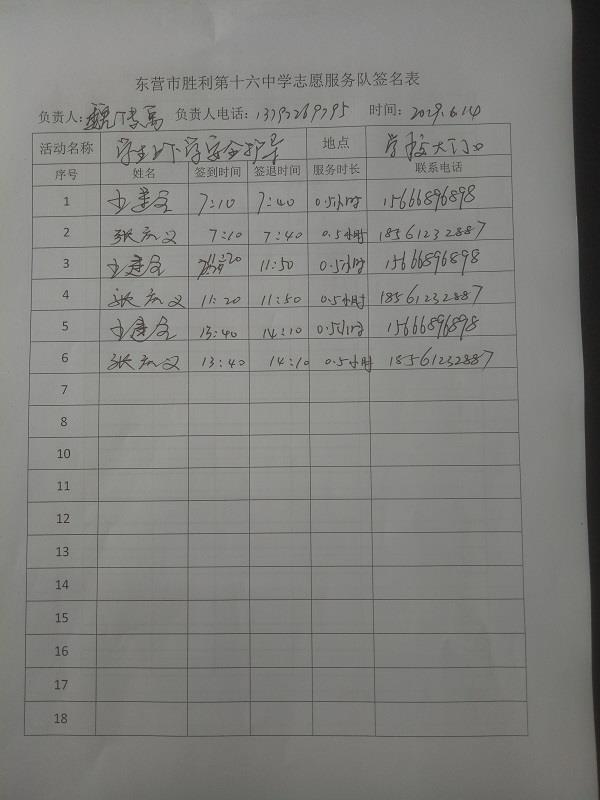 东营市胜利第十六中学志愿服务队签名表
负责人：魏传禹 负责人电话：13792269295 时间：2029.6.14
活动名称 学生上下学安全护导 地点 学校大门口
序号 姓名 签到时间 签退时间 服务时长 联系电话
1 7:10 7:40 0.5小时 15666896898
2 张 义 7:10 7:40 0.5小时 18561232887
3 11:50 0.5小时 15666896898
4 张 义 11:20 11:50 0.5小时 18561232887
5 13:40 14:10 0.5小时 15666896898
6 张 义 13:40 14:10 0.5小时 18561232887
7
8
10
11
12
13
14
15
16
17
18